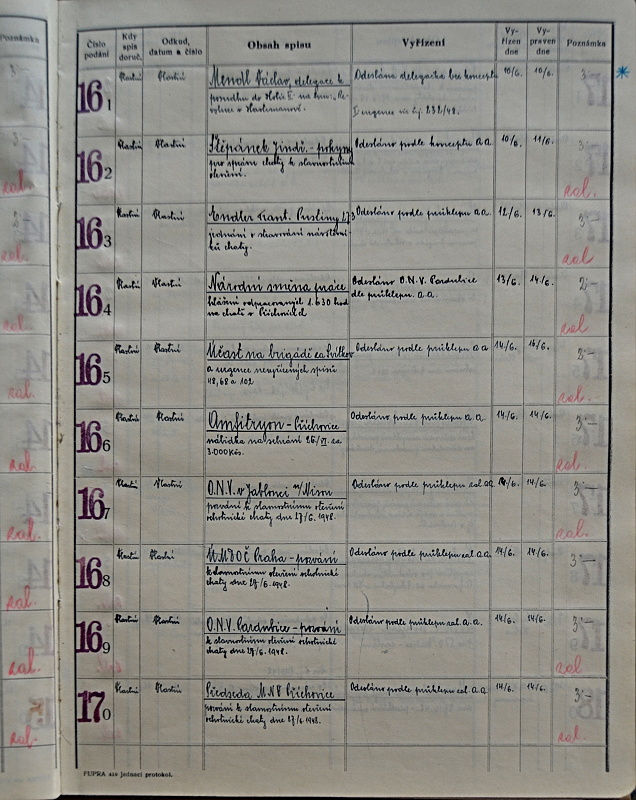 Poznámka
Číslo podání
Kdy spis doruč.
Odkud, datum a číslo
Obsah spisu
Vyřízení
Vyřízen dne
Vypraven dne
Poznámka
161 Vlastní Vlastní Mendl Václav, delegace k
Odeslána delegačka bez konceptu 10/6. 10/6. 3.-
162 Vlastní Vlastní Štěpánek Jindř. - pokyny
pro správu chaty k slavnostnímu
otevření.
Odesláno podle konceptu a.a. 10/6. 11/6. 3.-
zal.
163 Vlastní Vlastní Endler Frant.
jednání o stravování návštěvní-
ků chaty.
Odesláno podle průklepu a.a. 12/6. 13/6. 3.-
zal
164 Vlastní Vlastní Národní směna práce
hlášení odpracovaných 1.630 hod
na chatě v Příchovicích
Odesláno O.N.V. Pardubice
dle průklepu a.a. 13/6. 14/6. 2.-
zal
165 Vlastní Vlastní Účast na brigádě
a urgence nevyřízených spisů
48, 68 a 102
Odesláno podle průklepu a.a. 14/6. 16/6. 2.-
zal.
166 Vlastní Vlastní Amfitryon - Příchovice
nabídka na sehrání 26/VI. za
3.000 Kčs.
Odesláno podle průklepu a.a. 14/6. 14/6. 3.-
zal.
167 Vlastní Vlastní O.N.V. v Jablonci n/Nisou
pozvání k slavnostnímu otevření
ochotnické chaty dne 27/6. 1948.
Odesláno podle průklepu zal. a.a. 14/6. 14/6. 3.-
zal.
168 Vlastní Vlastní ÚMDOČ Praha - pozvání
k slavnostnímu otevření ochotnické
chaty dne 27/6. 1948.
Odesláno podle průklepu zal. a.a. 14/6. 14/6. 3.-
169 Vlastní Vlastní O.N.V. Pardubice - pozvání
k slavnostnímu otevření ochotnické
chaty dne 27/6. 1948.
Odesláno podle průklepu zal. a.a. 14/6. 14/6. 3.-
zal
170 Vlastní Vlastní Předseda MNV Příchovice
pozvání k slavnostnímu otevření
ochotnické chaty dne 27/6 1948.
Odesláno podle průklepu zal. a.a. 14/6. 14/6. 3.-
zal.
FUPRA 419 jednací protokol.